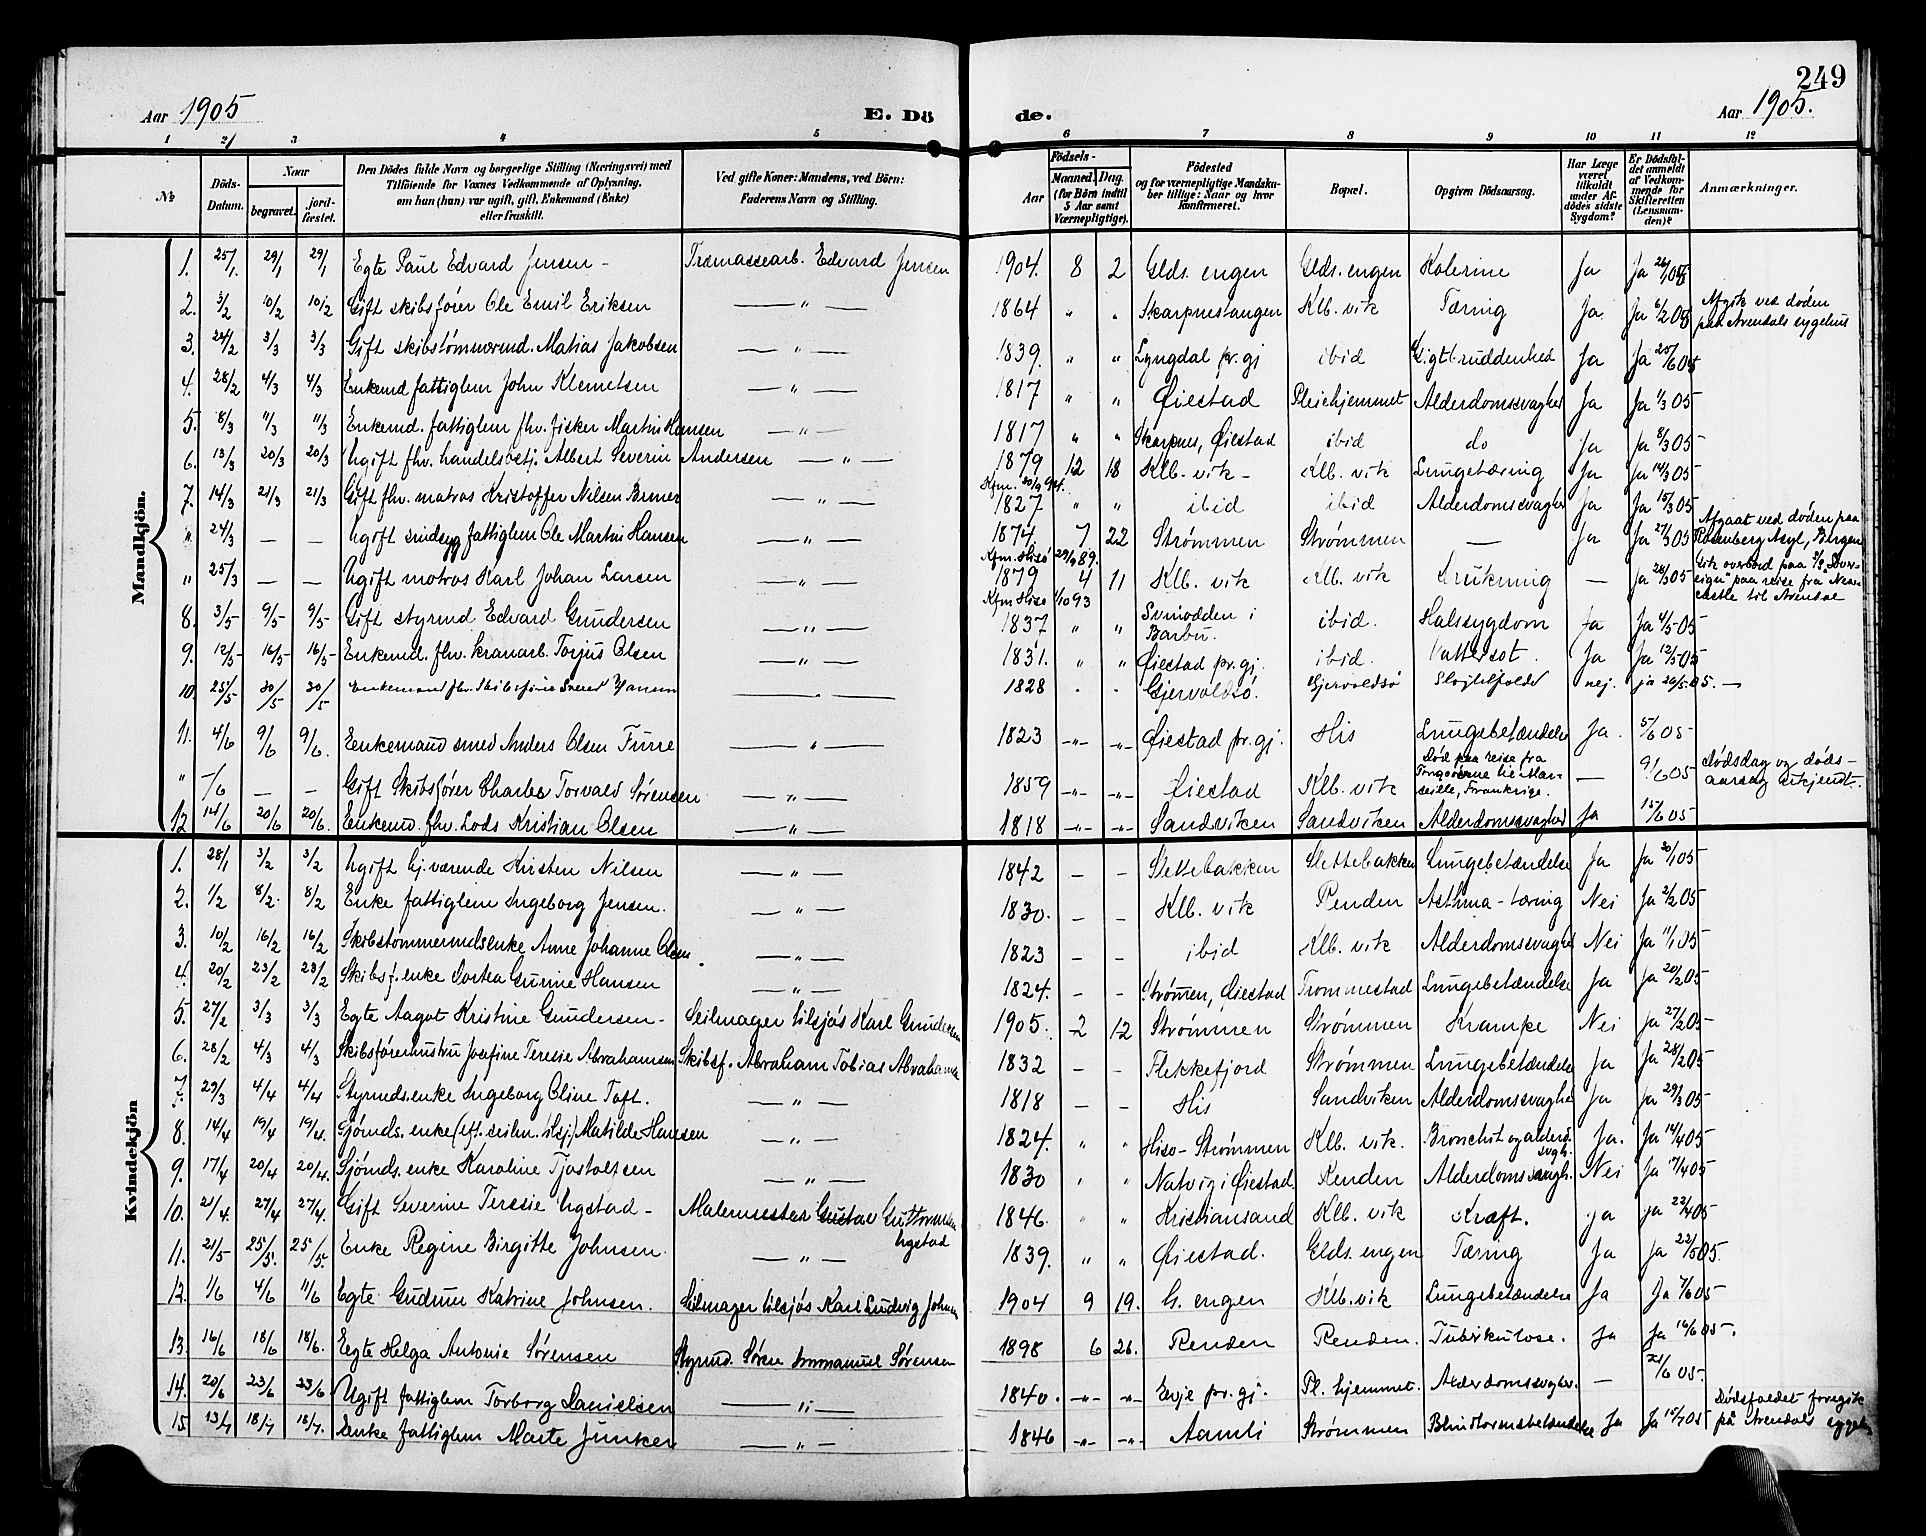 249
Aar 1905
E. Dö
de.
Aar 1905.
1 2/ 3 4 5 6 7 8 9 10 11 12
№
Döds-Datum.
Naar
begravet.
jord-fæstet.
Den Dödes fulde Navn og borgerlige Stilling (Næringsvei) med
Tilföiende for Voxnes Vedkommende af Oplysning,
om han (hun) var ugift, gift, Enkemand (Enke)
eller fraskilt.
Ved gifte Koner: Mandens, ved Börn:
Faderens Navn og Stilling.
Födsels-
Aar
Maaned. Dag.
(for Börn indtil
5 Aar samt
Værnepligtige).
Födested
og for værnepligtige Mandska-
ber tillige: Naar og hvor
konfirmeret.
Bopæl.
Opgiven Dödsaarsag.
Har Læge
været
tilkaldt
under Af-
dödes sidste
Sygdom?
Er Dödsfal-
det anmeldt
af Vedkom-
mende for
Skifteretten
(Lensman-
den)?
Anmærkninger.
Mandkjön.
1. 25/1. 29/1 29/1 Egte Paul Edvard Jensen – Træmassearb. Edvard Jensen 1904. 8 2 Glds. engen Glds. engen Kolerine Ja Ja 26/1 05
2. 3/2 10/2 10/2 Gift skibsfører Ole Emil Eriksen — " — 1864 " " Skarpnestangen Klb. vik Tæring Ja. Ja 6/2 05 Afgik ved døden paa Arendals sygehus
3. 24/2 3/3 3/3 Gift skibstømmermd. Matias Jakobsen — " — 1839. " " Lyngdal pr. gj ibid Gigtbruddenhed Ja Ja 25/6 05
4. 28/2 4/3 4/3 Enkemd fattiglem John Klemetsen — " — 1817 " " Øiestad Pleiehjemmet Alderdomssvaghed Ja Ja 1/3 05
5. 8/3 11/3 11/3 Enkemd. fattiglem fhv. fisker Martin Hansen — " — 1817 " " Skarpnes, Øiestad ibid do Ja Ja 8/3 05
6. 13/3 20/3 20/3 Ugift fhv. handelsbetj. Albert Severin Andersen — " — 1879 12 18 Klb. vik – Klb. vik Lungetæring Ja Ja 14/3 05
Kfm. 30/9 94.
7. 14/3 21/3 21/3 Gift fhv. matros Kristoffer Nilsen — " — 1827 " " ibid ibid Alderdomssvaghed Ja Ja 15/3 05
" 24/3 — — Ugift sindsyg fattiglem Ole Martin Hansen — " — 1874. 7 22 Strømmen Strømmen — Ja Ja 27/3 05 Afgaat ved døden paa Rosenberg Asyl, Bergen
Kfm. Hisø 29/9 89.
" 25/3 — — Ugift matros Karl Johan Larsen — " — 1879 4 11 Klb. vik Klb. vik Drukning — Ja 28/3 05 Gik overbord paa S/S "Sovereign" paa reise fra Newcastle til Arendal
Kfm Hisø 1/10 93
8. 3/5- 9/5- 9/5- Gift styrmd Edvard Gundersen — " — 1837 " " Svinodden i Barbu. ibid. Halssygdom Ja Ja 4/5-05
9. 12/5- 16/5- 16/5- Enkemd. fhv. kranarb. Torjus Olsen — " — 1831. " " Øiestad pr. gj. ibid. Vattersot. Ja Ja 12/5 05
10. 25/5 30/5 30/5 Enkemand fhv. skibsfører Hansen — " — 1828 " " Gjervoldsø. Gjervoldsø nej. ja 26/5.05. —
11. 4/6 9/6 9/6. Eenkemand smed Anders Olsen Furre — " — 1823 -"- -"- Øiestad pr. gj. His Lungebetændelse Ja. 5/6 05-
" -/6 — — Gift Skibsfører Charles Torvald Sørensen — " — 1859 -"- -"- Øiestad Klb. vik Død paa reise fra til Marseille, Frankrige. — 9/6 05 Dødsdag og dødsaarsag ukjendt.
12 14/6 20/6 20/6. Eenkemd. fhv. Lods Kristian Olsen — " — 1818 -"- -"- Sandviken Sandviken Alderdomssvaghed Ja 15/6 05
Kvindekjön
1. 28/1 3/2 3/2 Ugift hj. værende Kirsten Nilsen — " — 1842 – – Slettebakken Slettebakken Lungebetændelse Ja Ja 30/1 05
2. 1/2 8/2. 8/2 Enke fattiglem Ingeborg Jensen. — " — 1830. – – Klb. vik Renden Asthma - tæring Nei Ja 2/2 05
3. 10/2 16/2 16/2 Skibstømmermdsenke Anne Johanne Olsen. — " — 1823 – – ibid Klb. vik Alderdomssvaghed Nei Ja 11/1 05-
4. 20/2 23/2 23/2 Skibsf. enke Dortea Gurine Hansen — " — 1824. – – Strømen, Øiestad Trommestad Lungebetændelse Ja Ja 20/2 05
5. 27/2 3/3 3/3 Egte Aagot Kristine Gundersen – Seilmager tilsjøs Karl Gundersen 1905. 2 12 Strømmen Strømmen Krampe Nei Ja 27/2 05
6. 28/2 4/3 4/3 Skibsførerhustru Josefine Teresie Abrahamsen Skibsf. Abraham Tobias Abrahamsen 1832 – – Flekkefjord Strømmen Lungebetændelse Ja Ja 28/2 05
7. 29/3 4/4 4/4 Styrmds. enke Ingeborg Oline Toft. — " — 1818 – – His Sandviken Alderdomssvaghed Ja Ja 29/3 05
8. 14/4 19/4 19/4. Sjømds. enke (eft. seilm. tilsj) Matilde Hansen — " — 1824. " " Hisø - Strømmen Klb. vik. Bronchit og alderdsvgh. Ja. Ja 14/4 05
9. 17/4 20/4 20/4. Sjømds. enke Karoline Tjøstolsen — " — 1830 " " Natvig i Øiestad Renden Alderdomssvagh. Nei Ja 17/4 05
10. 21/4. 27/4 27/4. Gift Severine Teresie Ugstad – Malermester Gustav Guttormsen Ugstad 1846. " " Kristiansand Klb. vik Kræft. Ja Ja 22/4 05
11. 21/5 25/5. 25/5. Enke Regine Birgitte Johnsen. — " — 1839. " " Øiestad. Glds. engen Tæring Ja Ja 22/5 05.
12. 1/6 4/6 11/6 Egte Gudrun Katrine Johnsen. Seilmager tilsjøs Karl Ludvig Johnsen 1904 9 19. G. engen Klb. vik Lungebetændelse Ja Ja 7/6 05
13. 16/6 18/6 18/6. Eegte Helga Antonie Sørensen Styrmd. Søren Immanuel Sørensen 1898 6 26. Renden Renden. Tubrikulose. Ja Ja 16/6 05-.
14. 20/6 23/6 23/6 Ugift fattiglem Torborg Danielsen — " — 1840. -"- -"- Evje pr. gj. Pl. hjemmet. Alderdomssvaghed. — 21/6 05.
15. 13/7 18/7 18/7. Eenke fattiglem Marte Junker — " — 1846 -"- -"- Aamli Strømmen Blindtarmsbetændelse Ja Ja 15/7 05 Dødsfaldet foregik på Arendals sygehus